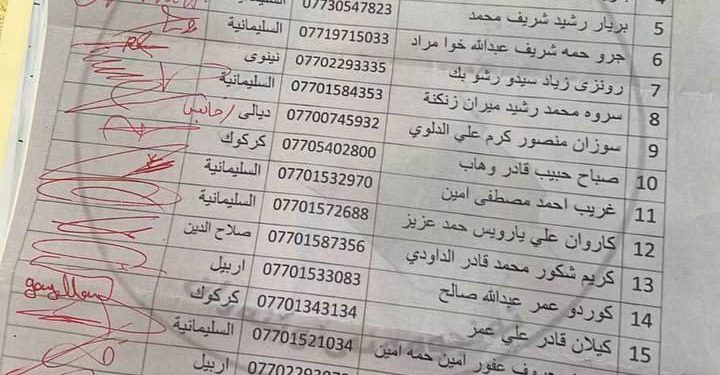 5 بريار رشيد شريف محمد 07730547823 السليمانية
6 جرو حمه شريف عبدالله خوا مراد 07719715033 السليمانية
7 رونزى زياد سيدو رشو بك 07702293335 نينوى
8 سروه محمد رشيد ميران زنكنة 07701584353 السليمانية
9 سوزان منصور كرم علي الدلوي 07700745932 ديالى /
10 صباح حبيب قادر وهاب 07705402800 كركوك
11 غريب احمد مصطفى امين 07701532970 السليمانية
12 كاروان علي يارويس حمد عزيز 07701572688 السليمانية
13 كريم شكور محمد قادر الداودي 07701587356 صلاح الدين
14 كوردو عمر عبدالله صالح 07701533083 اربيل
15 كيلان قادر علي عمر 07701343134 كركوك
امين حمه امين 07701521034 السليمانية
اربيل